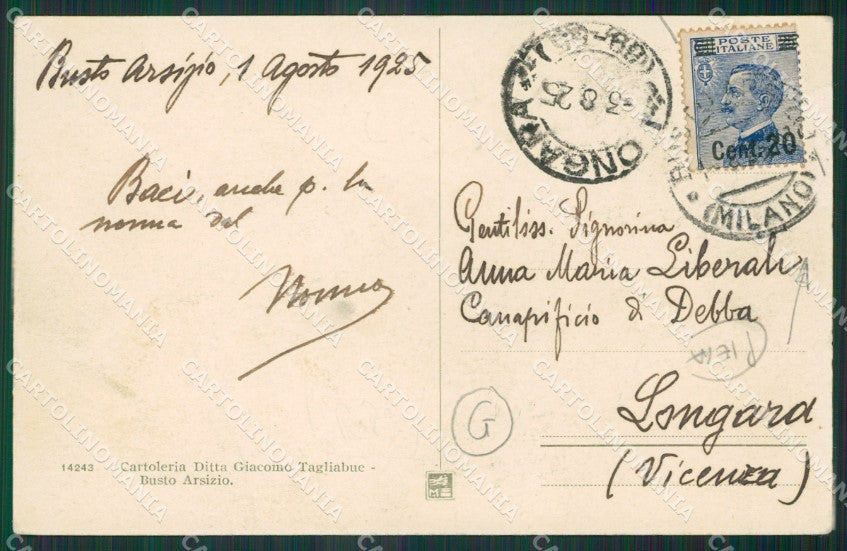 Busto Arsizio, 1 Agosto 1925
Baci, anche p. la
nonna dal
Nonno
14243 Cartoleria Ditta Giacomo Tagliabue -
Busto Arsizio.
LONGARA
-3.8.25
POSTE
ITALIANE
Cent. 20
(MILANO)
Gentiliss. Signorina
Anna Maria Liberali
Canapificio di Debba
PIEM
G
Longara
(Vicenza)
CARTOLINOMANIA